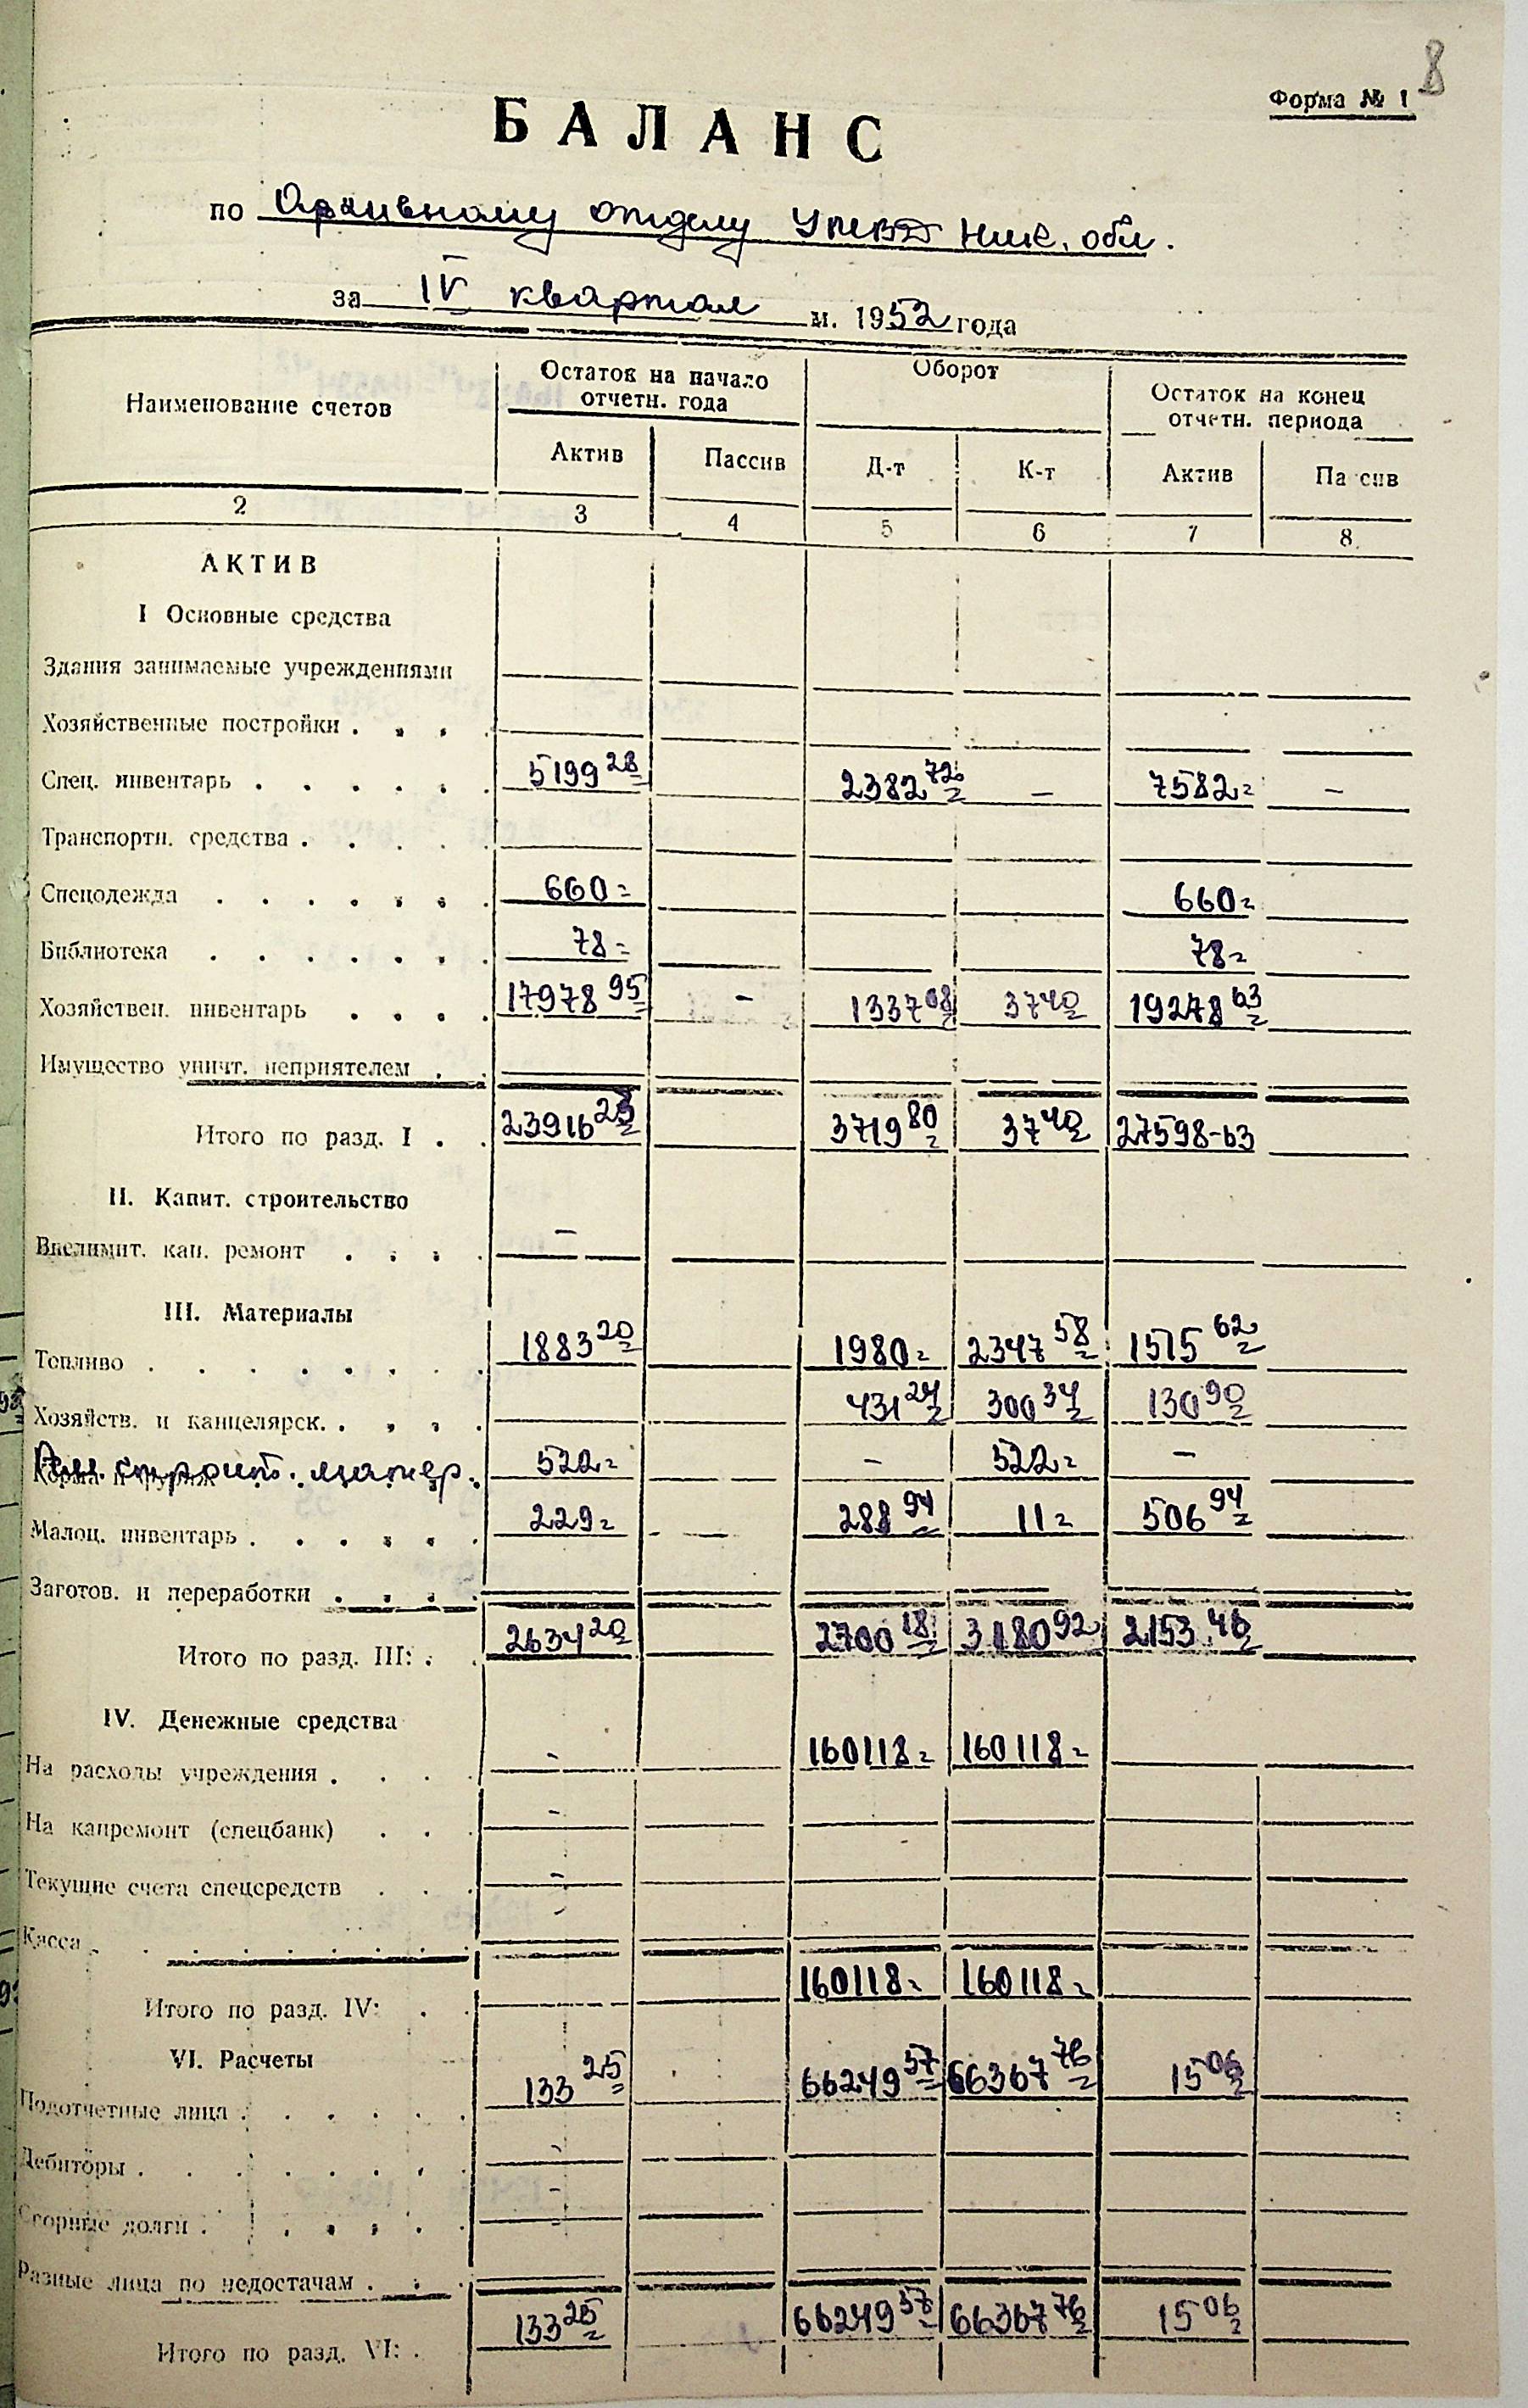 8
Форма № 1
БАЛАНС
по Архивному отделу УМВД Ник. обл.
за IV квартал м. 1952 года
Наименование счетов Остаток на начало отчетн. года Оборот Остаток на конец отчетн. периода
Актив Пассив Д-т К-т Актив Па сив
2 3 4 5 6 7 8
АКТИВ
I Основные средства
Здания занимаемые учреждениями
Хозяйственные постройки . . . .
Спец. инвентарь . . . . . . 5199 28 2382 72 – 7582= –
Транспортн. средства . . . . .
Спецодежда . . . . . . . 660= 660=
Библиотека . . . . . . . 78= 78=
Хозяйствен. инвентарь . . . . 17978 95 – 1337 08 37 40 19278 63
Имущество уничт. неприятелем . .
Итого по разд. I . . 23916 23 3719 80 37 40 27598-63
II. Капит. строительство
Внелимит. кап. ремонт . . . . –
III. Материалы
Топливо . . . . . . . 1883 20 1980= 2347 58 1515 62
Хозяйств. и канцелярск. . . . 431 24 300 34 130 90
строит. матер. 522= – 522= –
Малоц. инвентарь . . . . . . 229= 288 94 11= 506 94
Заготов. и переработки . . . .
Итого по разд. III: . . 2634 20 2700 18 3180 92 2153 46
IV. Денежные средства
На расходы учреждения . . . . – 160118= 160118=
На капремонт (спецбанк) . . . –
Текущие счета спецсредств . . . –
Касса . . . . . . . . –
Итого по разд. IV: . . 160118= 160118=
VI. Расчеты
Подотчетные лица . . . . . . 133 25 66249 57 66367 76 15 06
Дебиторы . . . . . . . –
Спорные долги . . . . . . –
Разные лица по недостачам . . .
Итого по разд. VI: . 133 25 66249 57 66367 76 15 06